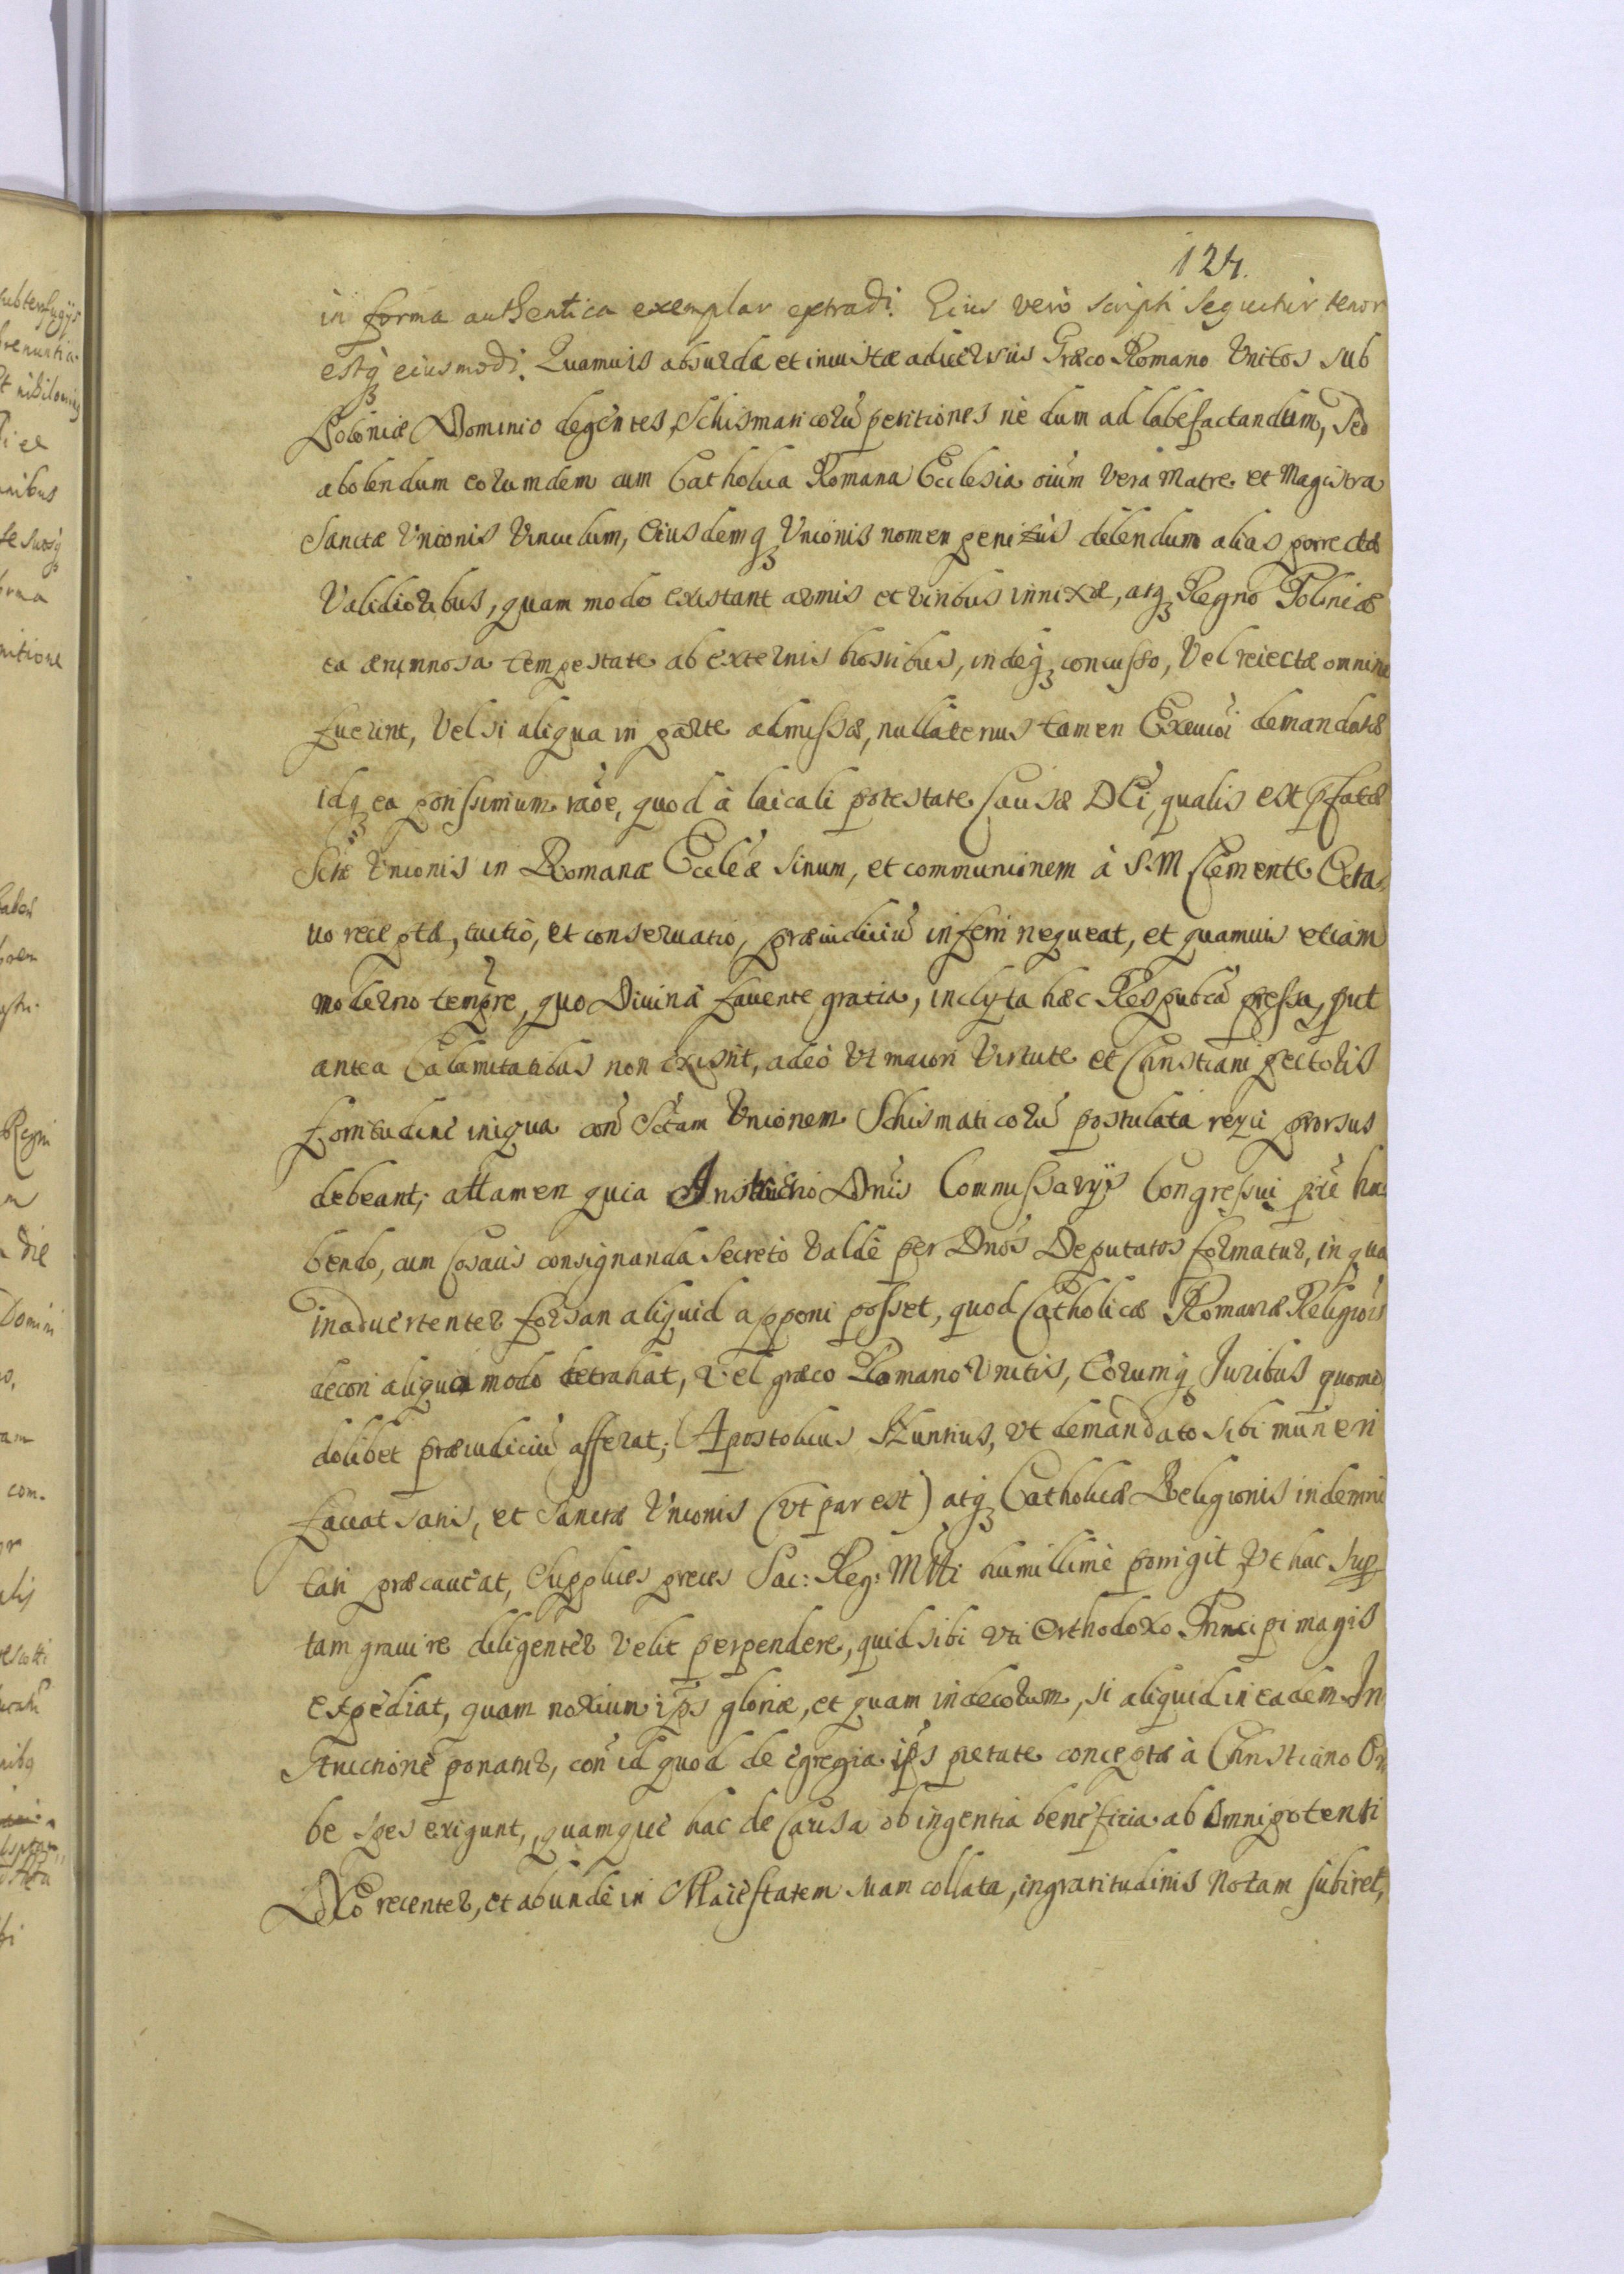 124.
in forma authentica exemplar extradi. Eius verò scripti sequitur tenor
estq3 eiusmodi. Quamuis absurdæ et iniustæ aduersus Græco Romano Vnitos sub
Poloniæ Dominio degentes, Schismaticorũ petitiones nè dum ad labefactandum, sed
abolendum eorumdem cum Catholica Romana Ecclesia oium vera Matre et Magistra
Sanctæ Vnionis Vinculum, Eiusdemq3 Vnionis nomen penitùs delendum alias porrectæ
Validioribus, quam modo existant armis et viribus innixæ, atq3 Regno Poloniæ
ea ærumnosa tempestate ab externis hostibus, indeq3 concusso, Vel reiectæ omnino
fuerint, Vel si aliqua in parte admissæ, nullatenus tamen Execuõi demandatæ
idq3 ea potissimum raõe, quod à laicali potestate Causæ Dei, qualis est pfatæ
Sctæ Vnionis in Romanæ Eccleæ sinum, et communionem à S.M Clemente Octa-
uo receptæ, tuitio, et conseruatio, præiudiciũ inferri nequeat, et quamuis etiam
moderno tempre, quo Diuinâ fauente gratia, inclyta hæc Respubca pressa, put
antea Calamitatibus non existit, adeò Vt maiori Virtute et Christiani pectoris
fortitudine iniqua con Sctam Vnionem Schismaticorũ postulata reijci prorsus
debeant; attamen quia Instructio Dnis Commissarijs Congressui ptè ha-
bendo, cum Cosacis consignanda secretò valdè per Dnos Deputatos formatur, in qua
inaduertenter forsan aliquid apponi posset, quod Catholicæ Romanæ Religiois
decori aliquo modo detrahat, Vel græco Romano Vnitis, Eorumq3 Juribus quomo
dolibet præiudiciũ afferat; Apostolicus Nuntius, Vt demandato sibi muneri
faciat satis, et Sanctæ Vnionis (vt par est) atq3 Catholicæ Religionis indemni
tati præcaueat, Supplices preces Sac: Reg: Mtti humillimè porrigit Vt hac sup
tam graui re diligenter Velit perpendere, quid sibi Vti Orthodoxo Principi magis
expediat, quam noxium ips gloriæ, et quam indecorum, si aliquid in eadem In
structione ponatur, con id quod de egregia ips pietate conceptæ à Christiano Or
be spes exigunt, quamquè hac de Causa ob ingentia beneficia ab Omnipotenti
Deo recenter, et abundè in Maiestatem suam collata, ingratitudinis notam subiret,